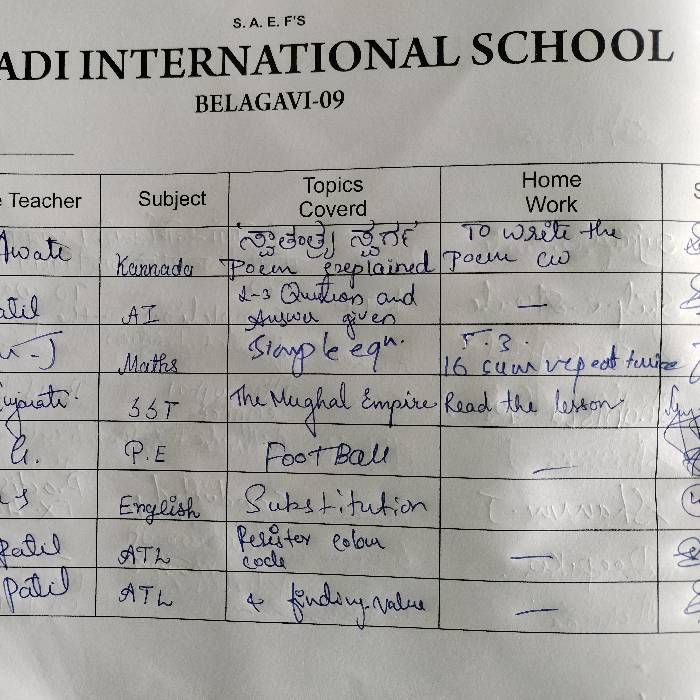 S. A. E. F'S
ADI INTERNATIONAL SCHOOL
BELAGAVI-09
Teacher Subject Topics Coverd Home Work S
Awate Kannada 'ಸ್ವಾತಂತ್ರ್ಯ ಸ್ವರ್ಗ' Poem explained To write the Poem cw
atil AI 2-3 Question and Answer given —
Maths Simple eqn. 16 sum repeat twice
Gujarati SST The Mughal Empire Read the lesson
G. P.E FootBall —
s English Substitution
patil ATL Resister colour code —
patil ATL & finding value —